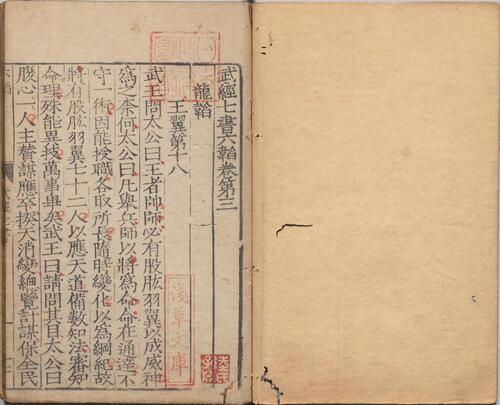 武經七書六韜卷第三
龍韜
王翼第十八
武王問太公曰王者帥師必有股肱羽翼以成威神
爲之奈何太公曰凡舉兵師以將爲命命在通達不
守一術因能授職各取所長隨時變化以爲綱紀故
將有股肱羽翼七十二人以應天道備數如法審知
命理殊能異技萬事畢矣武王曰請問其目太公曰
腹心一人主賛謀應卒揆天消變緫覽計謀保全民
淺草文庫